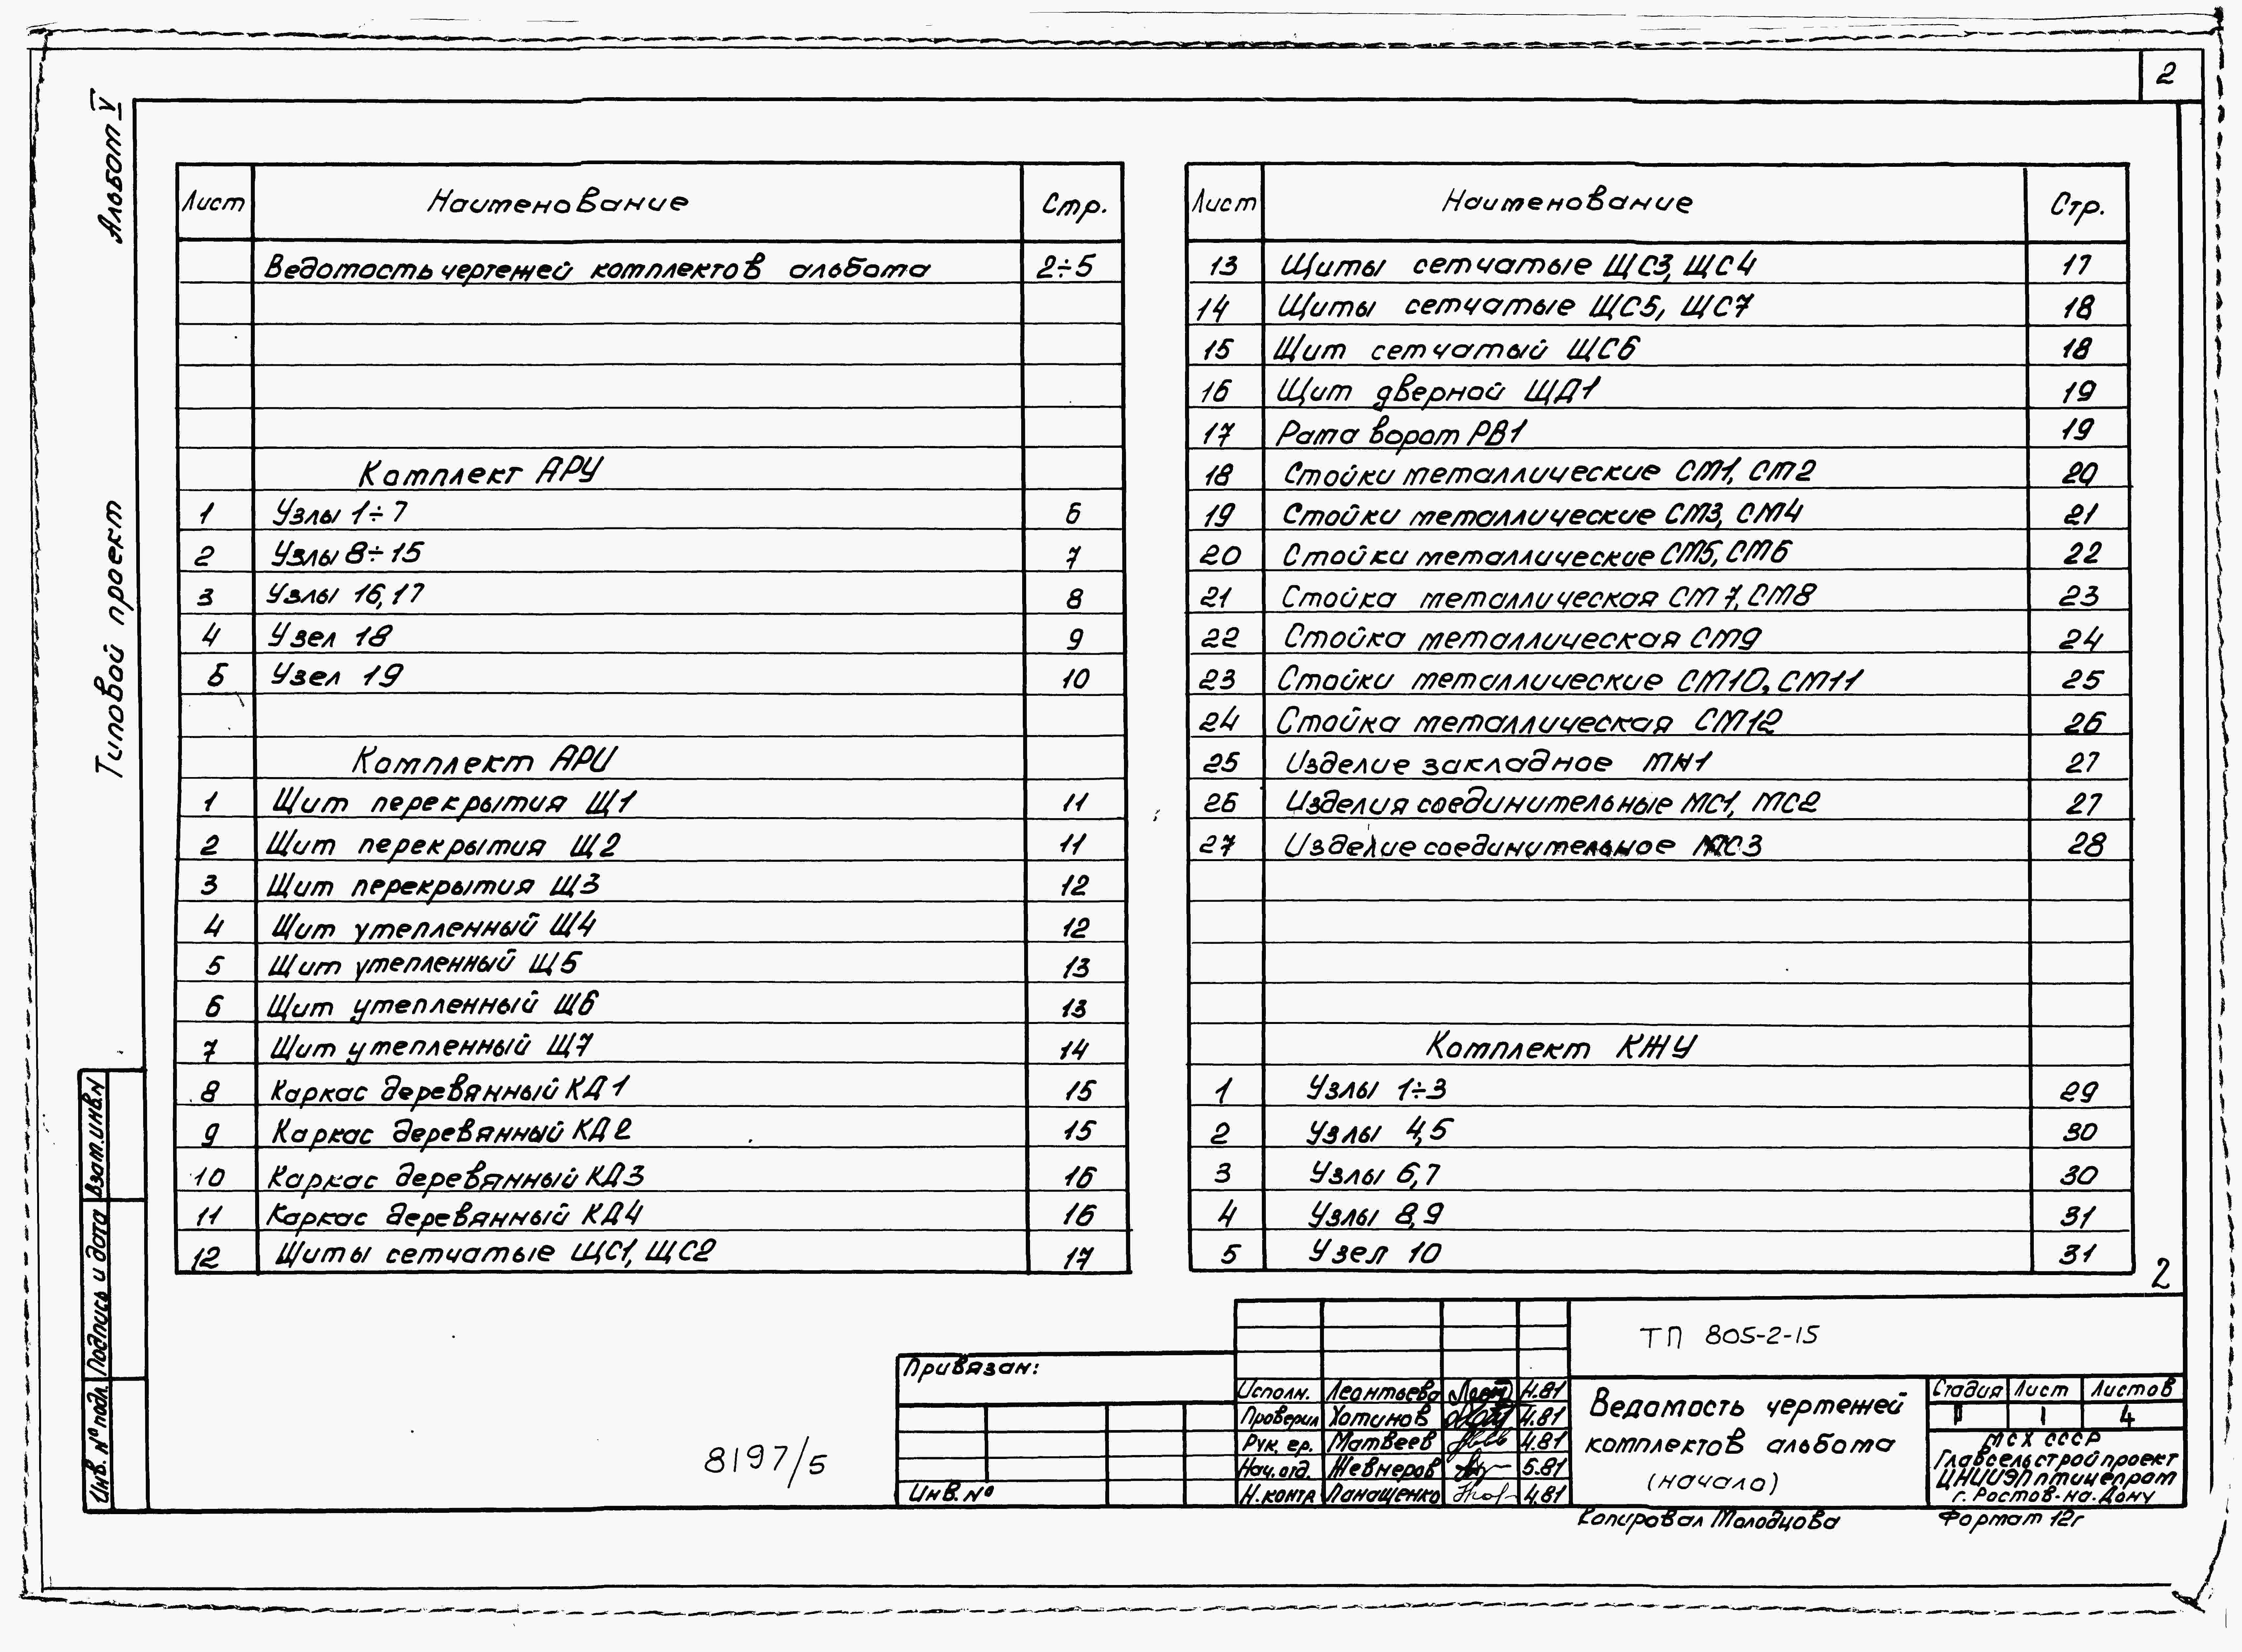 2
Альбом V
Типовой проект
Лист Наименование Стр.
Ведомость чертежей комплектов альбома 2÷5
Комплект АРУ
1 Узлы 1÷7 6
2 Узлы 8÷15 7
3 Узлы 16,17 8
4 Узел 18 9
5 Узел 19 10
Комплект АРИ
1 Щит перекрытия Щ1 11
2 Щит перекрытия Щ2 11
3 Щит перекрытия Щ3 12
4 Щит утепленный Щ4 12
5 Щит утепленный Щ5 13
6 Щит утепленный Щ6 13
7 Щит утепленный Щ7 14
8 Каркас деревянный КД1 15
9 Каркас деревянный КД2 15
10 Каркас деревянный КД3 16
11 Каркас деревянный КД4 16
12 Щиты сетчатые ЩС1, ЩС2 17
Лист Наименование Стр.
13 Щиты сетчатые ЩС3, ЩС4 17
14 Щиты сетчатые ЩС5, ЩС7 18
15 Щит сетчатый ЩС6 18
16 Щит дверной ЩД1 19
17 Рама ворот РВ1 19
18 Стойки металлические СМ1, СМ2 20
19 Стойки металлические СМ3, СМ4 21
20 Стойки металлические СМ5, СМ6 22
21 Стойка металлическая СМ7, СМ8 23
22 Стойка металлическая СМ9 24
23 Стойки металлические СМ10, СМ11 25
24 Стойка металлическая СМ12 26
25 Изделие закладное МН1 27
26 Изделия соединительные МС1, МС2 27
27 Изделие соединительное МС3 28
Комплект КЖУ
1 Узлы 1÷3 29
2 Узлы 4,5 30
3 Узлы 6,7 30
4 Узлы 8,9 31
5 Узел 10 31
2
Взам.инв.N
Подпись и дата
Инв. N° подл.
8197/5
Привязан:
Инв. N°
Исполн. Леонтьева 4.81
Проверил Хотинов 4.81
Рук. гр. Матвеев 4.81
Нач. отд. Жевнеров 5.81
Н. контр Панащенко 4.81
ТП 805-2-15
Ведомость чертежей
комплектов альбома
(начало)
Стадия Лист Листов
Р 1 4
МСХ СССР
Главсельстройпроект
ЦНИИЭПптицепром
г. Ростов-на-Дону
Копировал Молодцова Формат 12г